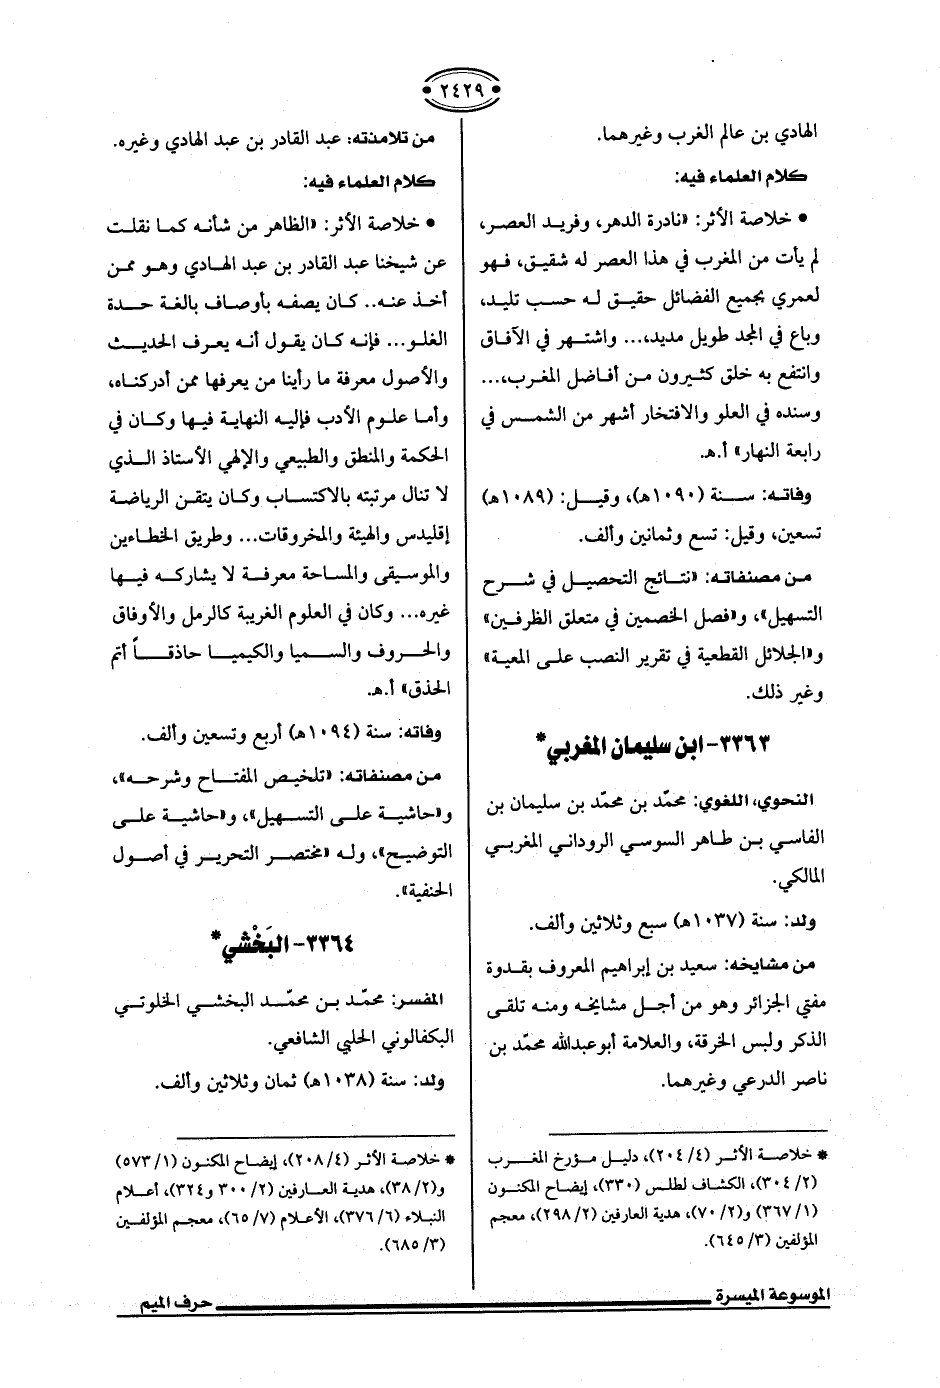 • ٢٤٢٩ •
الهادي بن عالم الغرب وغيرهما.
كلام العلماء فيه:
• خلاصة الأثر: «نادرة الدهر، وفريد العصر،
لم يأت من المغرب في هذا العصر له شقيق، فهو
لعمري بجميع الفضائل حقيق له حسب تليد،
وباع في المجد طويل مديد،... واشتهر في الآفاق
وانتفع به خلق كثيرون من أفاضل المغرب،...
وسنده في العلو والافتخار أشهر من الشمس في
رابعة النهار» أ.هـ.
وفاته: سنة (١٠٩٠هـ)، وقيل: (١٠٨٩هـ)
تسعين، وقيل: تسع وثمانين وألف.
من مصنفاته: «نتائج التحصيل في شرح
التسهيل»، و«فصل الخصمين في متعلق الظرفين»
و«الجلائل القطعية في تقرير النصب على المعية»
وغير ذلك.
٣٣٦٣- ابن سليمان المغربي*
النحوي، اللغوي: محمّد بن محمّد بن سليمان بن
الفاسي بن طاهر السوسي الروداني المغربي
المالكي.
ولد: سنة (١٠٣٧هـ) سبع وثلاثين وألف.
من مشايخه: سعيد بن إبراهيم المعروف بقدوة
مفتي الجزائر وهو من أجل مشايخه ومنه تلقى
الذكر ولبس الخرقة، والعلامة أبو عبدالله محمّد بن
ناصر الدرعي وغيرهما.
* خلاصة الأثر (٤/ ٢٠٤)، دليل مؤرخ المغرب
(٢/ ٣٠٤)، الكشاف لطلس (٣٣٠)، إيضاح المكنون
(١/ ٣٦٧) و(٢/ ٧٠)، هدية العارفين (٢/ ٢٩٨)، معجم
المؤلفين (٣/ ٦٤٥).
من تلامذته: عبد القادر بن عبد الهادي وغيره.
كلام العلماء فيه:
• خلاصة الأثر: «الظاهر من شأنه كما نقلت
عن شيخنا عبد القادر بن عبد الهادي وهو ممن
أخذ عنه.. كان يصفه بأوصاف بالغة حدة
الغلو... فإنه كان يقول أنه يعرف الحديث
والأصول معرفة ما رأينا من يعرفها ممن أدركناه،
وأما علوم الأدب فإليه النهاية فيها وكان في
الحكمة والمنطق والطبيعي والإلهي الأستاذ الذي
لا تنال مرتبته بالاكتساب وكان يتقن الرياضة
إقليدس والهيئة والمخروقات... وطريق الخطاءين
والموسيقى والمساحة معرفة لا يشاركه فيها
غيره... وكان في العلوم الغريبة كالرمل والأوفاق
والحروف والسميا والكيميا حاذقاً أتم
الحذق» أ.هـ.
وفاته: سنة (١٠٩٤هـ) أربع وتسعين وألف.
من مصنفاته: «تلخيص المفتاح وشرحه»،
و«حاشية على التسهيل»، و«حاشية على
التوضيح»، وله «مختصر التحرير في أصول
الحنفية».
٣٣٦٤- البَخْشي*
المفسر: محمّد بن محمّد البخشي الخلوتي
البكفالوني الحلبي الشافعي.
ولد: سنة (١٠٣٨هـ) ثمان وثلاثين وألف.
* خلاصة الأثر (٤/ ٢٠٨)، إيضاح المكنون (١/ ٥٧٣)
و(٢/ ٣٨)، هدية العارفين (٢/ ٣٠٠ و٣٢٤)، أعلام
النبلاء (٦/ ٣٧٦)، الأعلام (٧/ ٦٥)، معجم المؤلفين
(٣/ ٦٨٥).
الموسوعة الميسرة حرف الميم